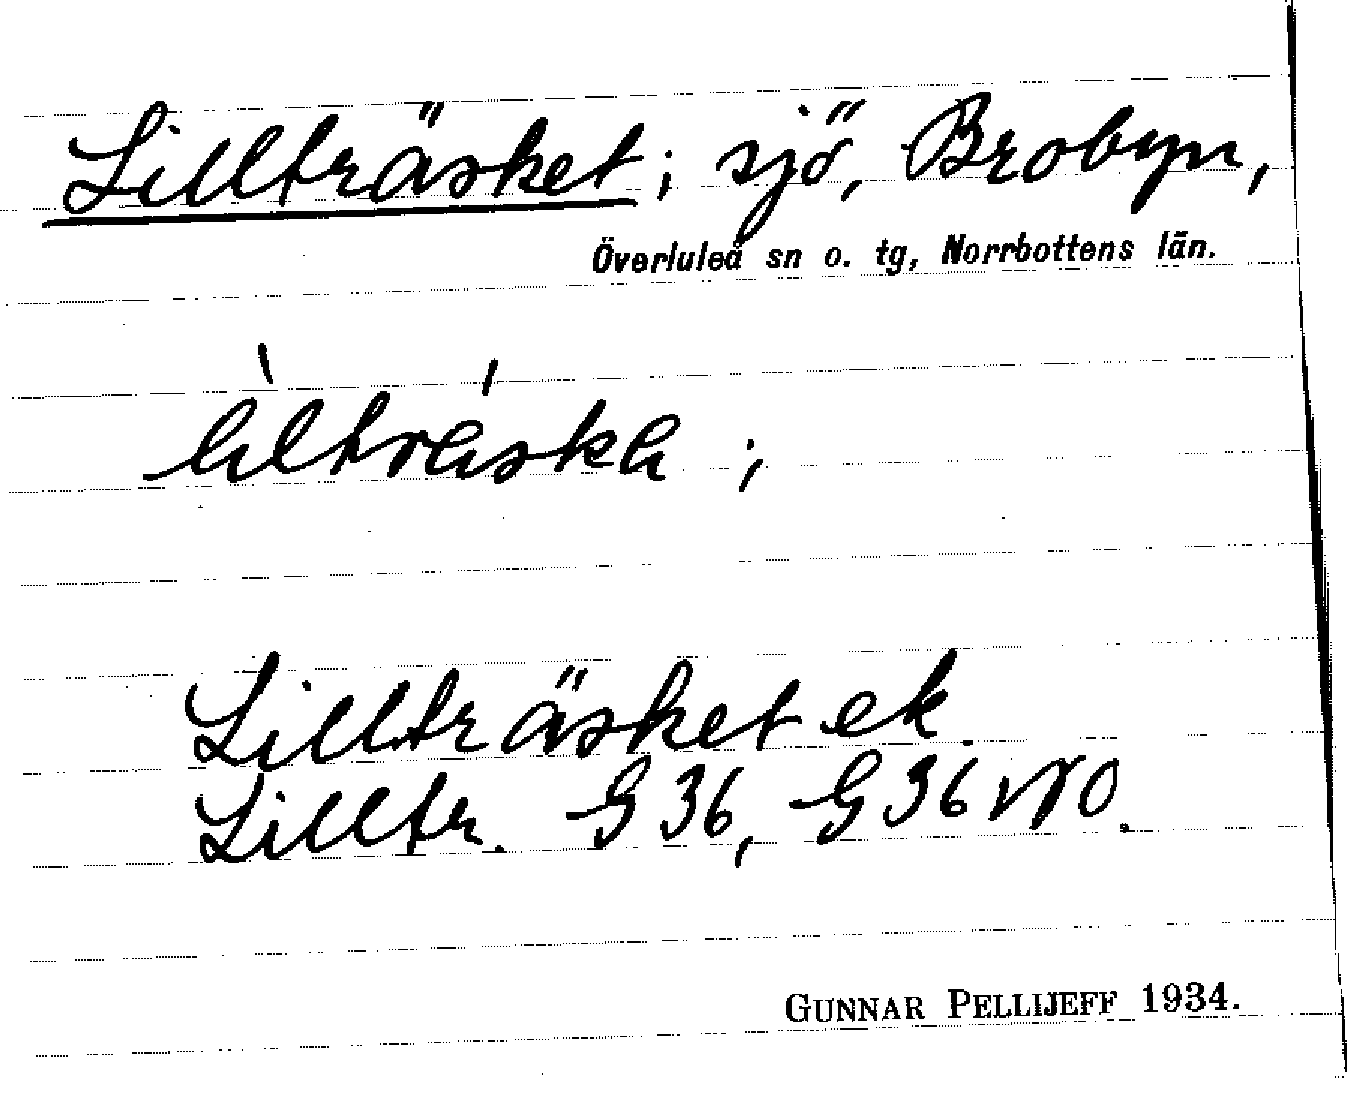 Lillträsket; sjö, Brobyn,
Överluleå sn o. tg, Norrbottens län.
Lillträsket ek.
Lilltr. G 36, G 36 NO.
GUNNAR PELLIJEFF 1934.